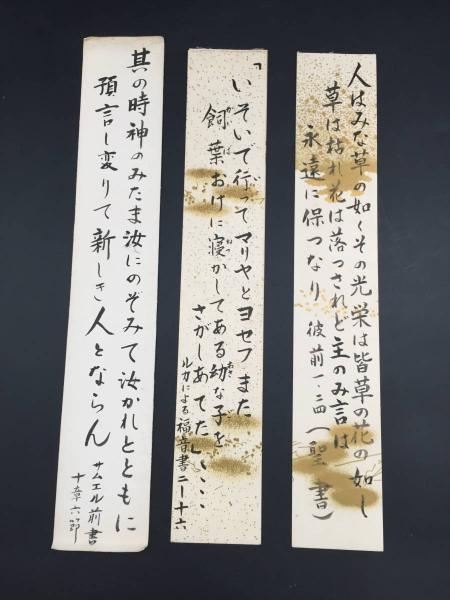 人はみな草の如くその光栄は皆草の花の如し
草は枯れ花は落つされど主のみ言は
永遠に保つなり 彼前一・二四(聖書)
「いそいで行ってマリヤとヨセフまた
飼葉おけに寝かしてある幼な子を
さがしあてた」、、、、
ルカによる福音書二ー十六
其の時神のみたま汝にのぞみて汝かれとともに
預言し変りて新しき人とならん
サムエル前書
十章六節